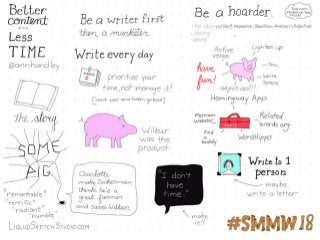 Better
content
and
Less
TIME
@annhandley
the story
SOME
PIG
"remarkable"
"terrific"
"radiant"
"humble"
LIQUIDSKETCHSTUDIO.COM
Be a writer first
then, a marketer.
Write every day
prioritize your
time, not manage it!
Wilbur
was the
product
Charlotte
makes Zuckerman
think he's a
great farmer
and saves Wilbur.
Be a hoarder.
Active
verbs
lighten up
have
fun!
white
space
adjectives!!!
Hemingway App
Merriam
Webster
Related
Words.org
Find
a
buddy
WordHippo
"I don't
have
time."
make
it!!
Write to 1
person
maybe
write a letter
#SMMW18